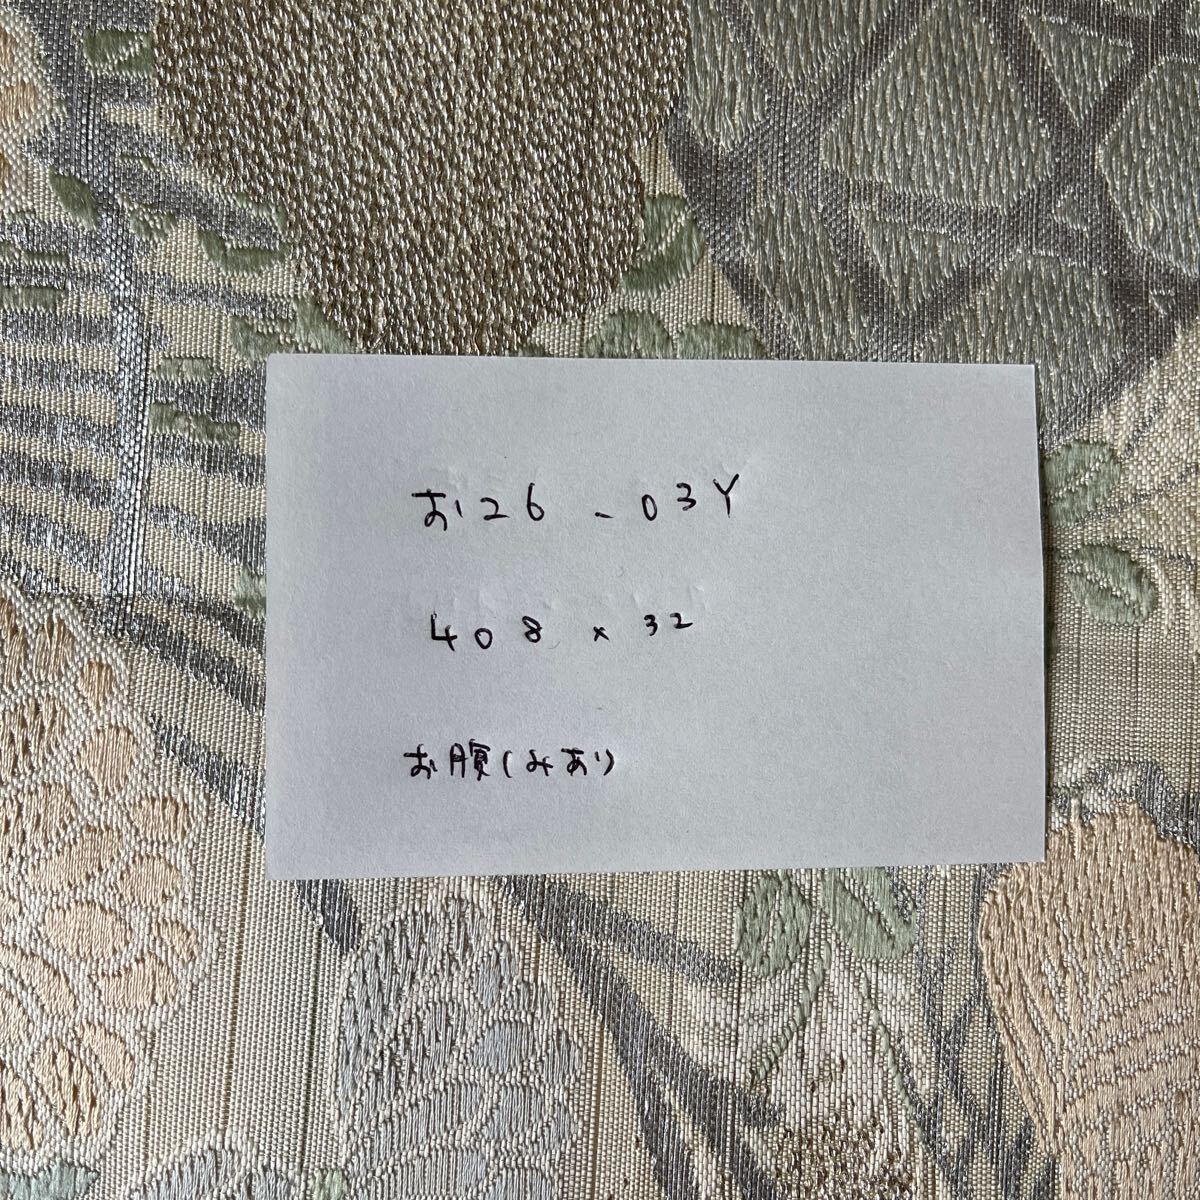 お26-03Y
408×32
お腹(みあり)